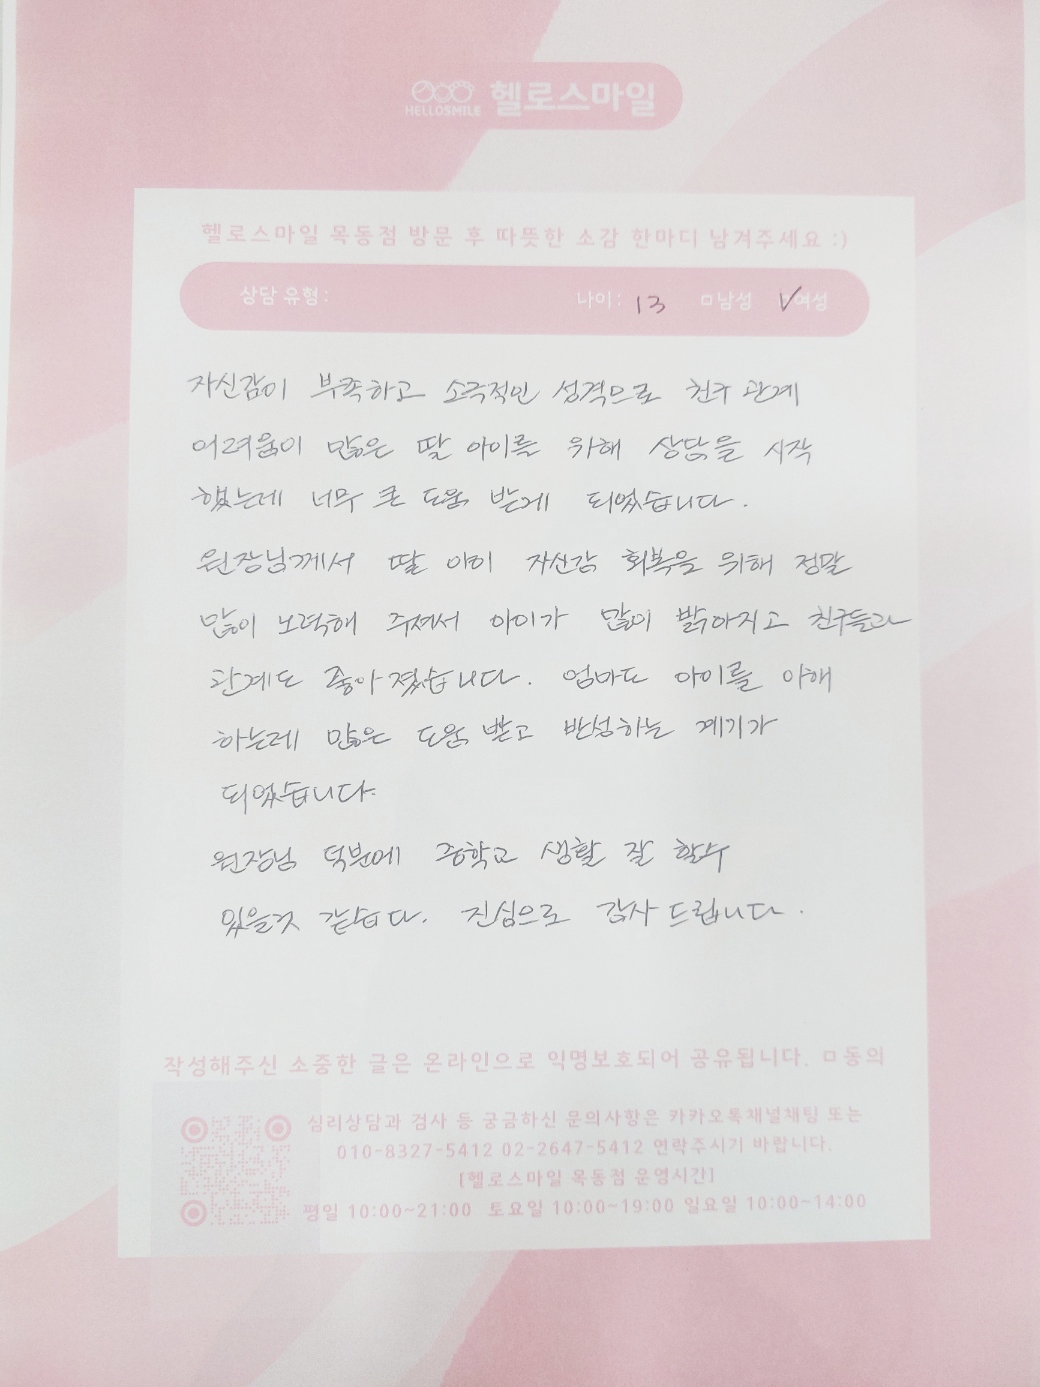 HELLOSMILE 헬로스마일
헬로스마일 목동점 방문 후 따뜻한 소감 한마디 남겨주세요 :)
상담 유형: 나이: 13 □남성 ☑여성
자신감이 부족하고 소극적인 성격으로 친구 관계
어려움이 많은 딸 아이를 위해 상담을 시작
했는데 너무 큰 도움 받게 되었습니다.
원장님께서 딸 아이 자신감 회복을 위해 정말
많이 노력해 주셔서 아이가 많이 밝아지고 친구들과
관계도 좋아졌습니다. 엄마도 아이를 이해
하는데 많은 도움 받고 반성하는 계기가
되었습니다.
원장님 덕분에 중학교 생활 잘 할수
있을것 같습다. 진심으로 감사 드립니다.
작성해주신 소중한 글은 온라인으로 익명보호되어 공유됩니다. □동의
심리상담과 검사 등 궁금하신 문의사항은 카카오톡채널채팅 또는
010-8327-5412 02-2647-5412 연락주시기 바랍니다.
[헬로스마일 목동점 운영시간]
평일 10:00~21:00 토요일 10:00~19:00 일요일 10:00~14:00